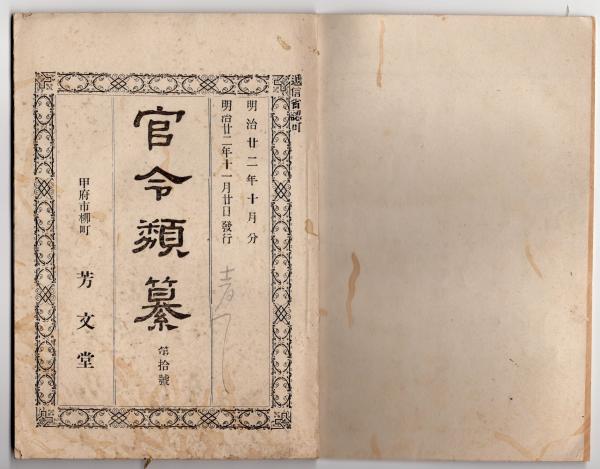 遞信省認可
明治廿二年十月分
明治廿二年十一月廿日發行
官令類纂
第拾號
甲府市柳町
芳文堂